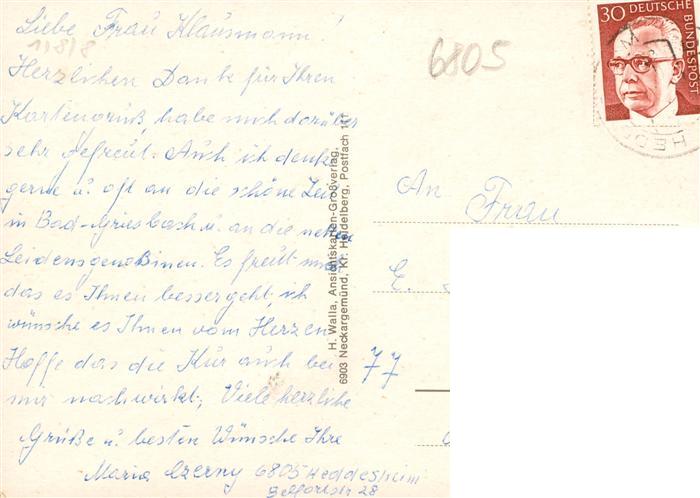 Liebe Frau Klausmann!
Herzlichen Dank für Ihren
Kartengruß, habe mich darüber
sehr gefreut. Auch ich denke
gerne u. oft an die schöne Zeit
in Bad-Griesbach u. an die netten
Leidensgenoßinen. Es freut mich
das es Ihnen bessergeht, ich
wünsche es Ihnen vom Herzen
Hoffe das die Kur auch bei
mir nachwirkt, Viele herzliche
Grüße u. besten Wünsche Ihre
Maria Czerny 6805 Heddesheim
Belfortstr 28
11818
6805
H. Walla, Ansichtskarten-Großverlag,
6903 Neckargemünd, Kr. Heidelberg, Postfach 111
30 DEUTSCHE
BUNDESPOST
HEDD
An Frau
E.
77